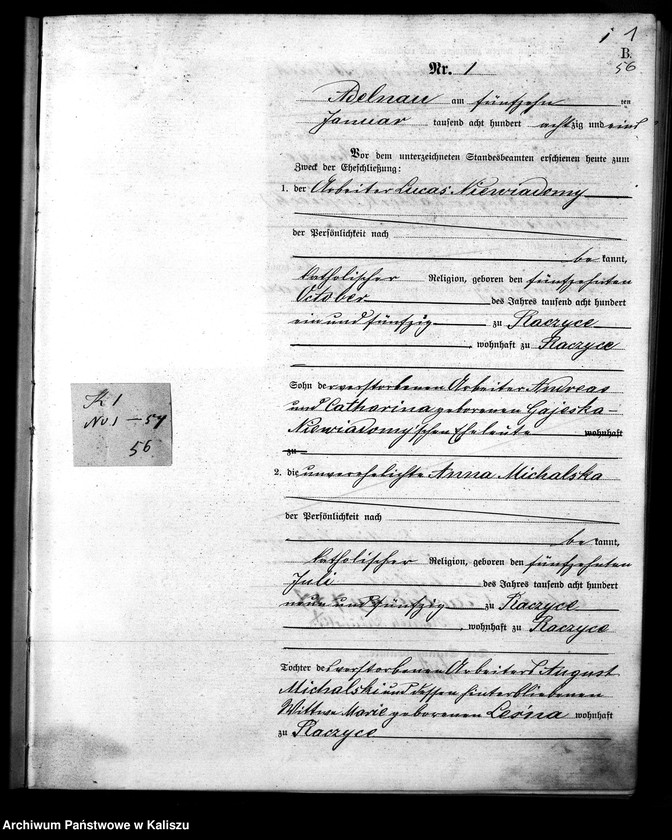 1 1
B.
56
Nr. 1
Adelnau am fünfzehn ten
Januar tausend acht hundert achtzig und eins
Vor dem unterzeichneten Standesbeamten erschienen heute zum
Zweck der Eheschließung:
1. der Arbeiter Lucas Niewiadomy
der Persönlichkeit nach
be kannt,
katholischer Religion, geboren den fünfzehnten
October des Jahres tausend acht hundert
ein und fünfzig zu Raczyce
, wohnhaft zu Raczyce
Sohn der verstorbenen Arbeiter Andreas
und Catharina geborenen Gajeska-
Niewiadomy'schen Eheleute wohnhaft
zu
K 1
No 1 — 57
56
2. die unverehelichte Anna Michalska
der Persönlichkeit nach
be kannt,
katholischer Religion, geboren den fünfzehnten
Juli des Jahres tausend acht hundert
neun und fünfzig zu Raczyce
, wohnhaft zu Raczyce
Tochter des verstorbenen Arbeiters August
Michalski und dessen hinterbliebenen
Wittwe Marie geborenen Leśna wohnhaft
zu Raczyce
Archiwum Państwowe w Kaliszu